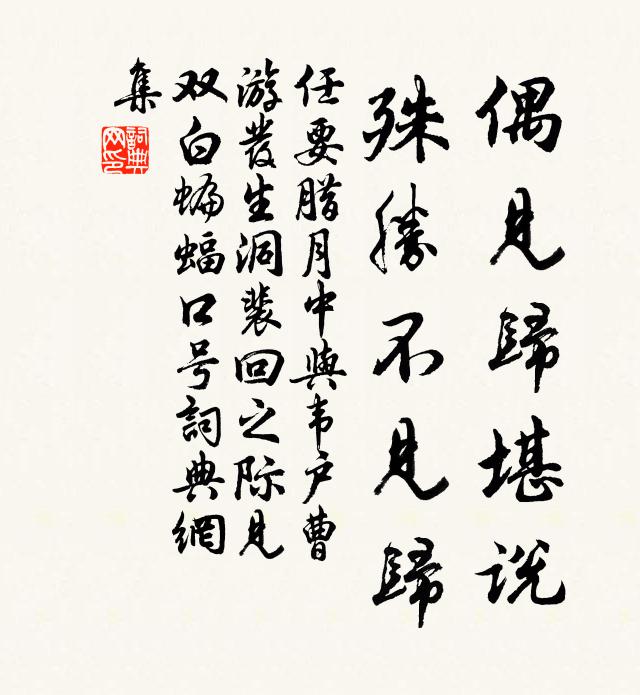 偶見歸堪說
殊勝不見歸
任要腊月中與韦户曹
游發生洞裴回之际見
双白蝙蝠口号詞典網
集
詞典
网印